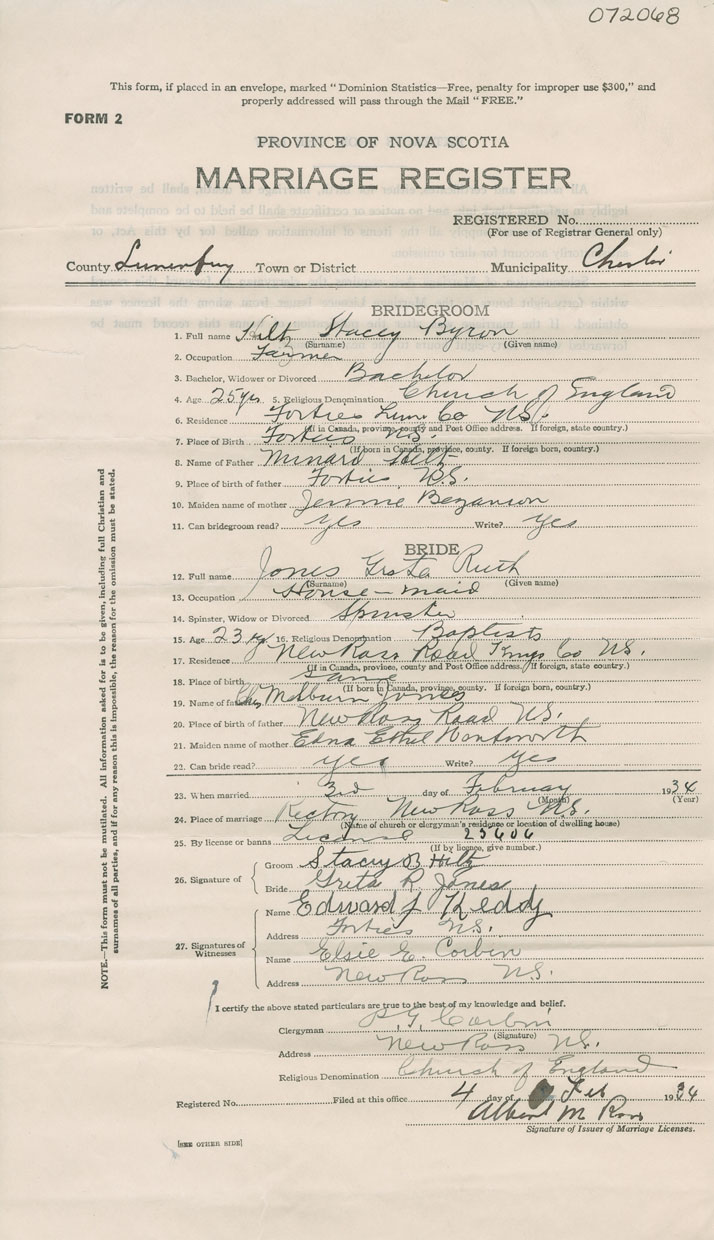 072068
This form, if placed in an envelope, marked "Dominion Statistics—Free, penalty for improper use $300," and
properly addressed will pass through the Mail "FREE."
FORM 2
PROVINCE OF NOVA SCOTIA
MARRIAGE REGISTER
REGISTERED No.
(For use of Registrar General only)
County Lunenburg Town or District Municipality Chester
BRIDEGROOM
1. Full name Hiltz Stacey Byron
(Surname) (Given name)
2. Occupation Farmer
3. Bachelor, Widower or Divorced Bachelor
4. Age 25 yrs 5. Religious Denomination Church of England
6. Residence Forties Lun. Co N.S.
(If in Canada, province, county and Post Office address. If foreign, state country.)
7. Place of Birth Forties N.S.
(If born in Canada, province, county. If foreign born, country.)
8. Name of Father Minard Hiltz
9. Place of birth of father Forties, N.S.
10. Maiden name of mother Jennie Bezanson
11. Can bridegroom read? Yes Write? Yes
BRIDE
12. Full name Jones Greta Ruth
(Surname) (Given name)
13. Occupation House-maid
14. Spinster, Widow or Divorced Spinster
15. Age 23 yrs 16. Religious Denomination Baptists
17. Residence New Ross Road Kings Co N.S.
(If in Canada, province, county and Post Office address. If foreign, state country.)
18. Place of birth Same
(If born in Canada, province, county. If foreign born, country.)
19. Name of father Melburn Jones
20. Place of birth of father New Ross Road N.S.
21. Maiden name of mother Edna Ethel Wentworth
22. Can bride read? yes Write? yes
23. When married 3rd day of February 1934
(Month) (Year)
24. Place of marriage Rectory New Ross N.S.
(Name of church or clergyman's residence or location of dwelling house)
25. By license or banns License 23606
(If by licence, give number.)
26. Signature of
Groom Stacey B Hiltz
Bride Greta R Jones
27. Signatures of Witnesses
Name Edward J Keddy
Address Forties N.S.
Name Elsie E. Corbin
Address New Ross N.S.
I certify the above stated particulars are true to the best of my knowledge and belief.
Clergyman Corbin
(Signature)
Address New Ross N.S.
Religious Denomination Church of England
Registered No. Filed at this office 4 day of Feb 1934
Albert M Ross
Signature of Issuer of Marriage Licenses.
[SEE OTHER SIDE]
NOTE.—This form must not be mutilated. All information asked for is to be given, including full Christian and
surnames of all parties, and if for any reason this is impossible, the reason for the omission must be stated.